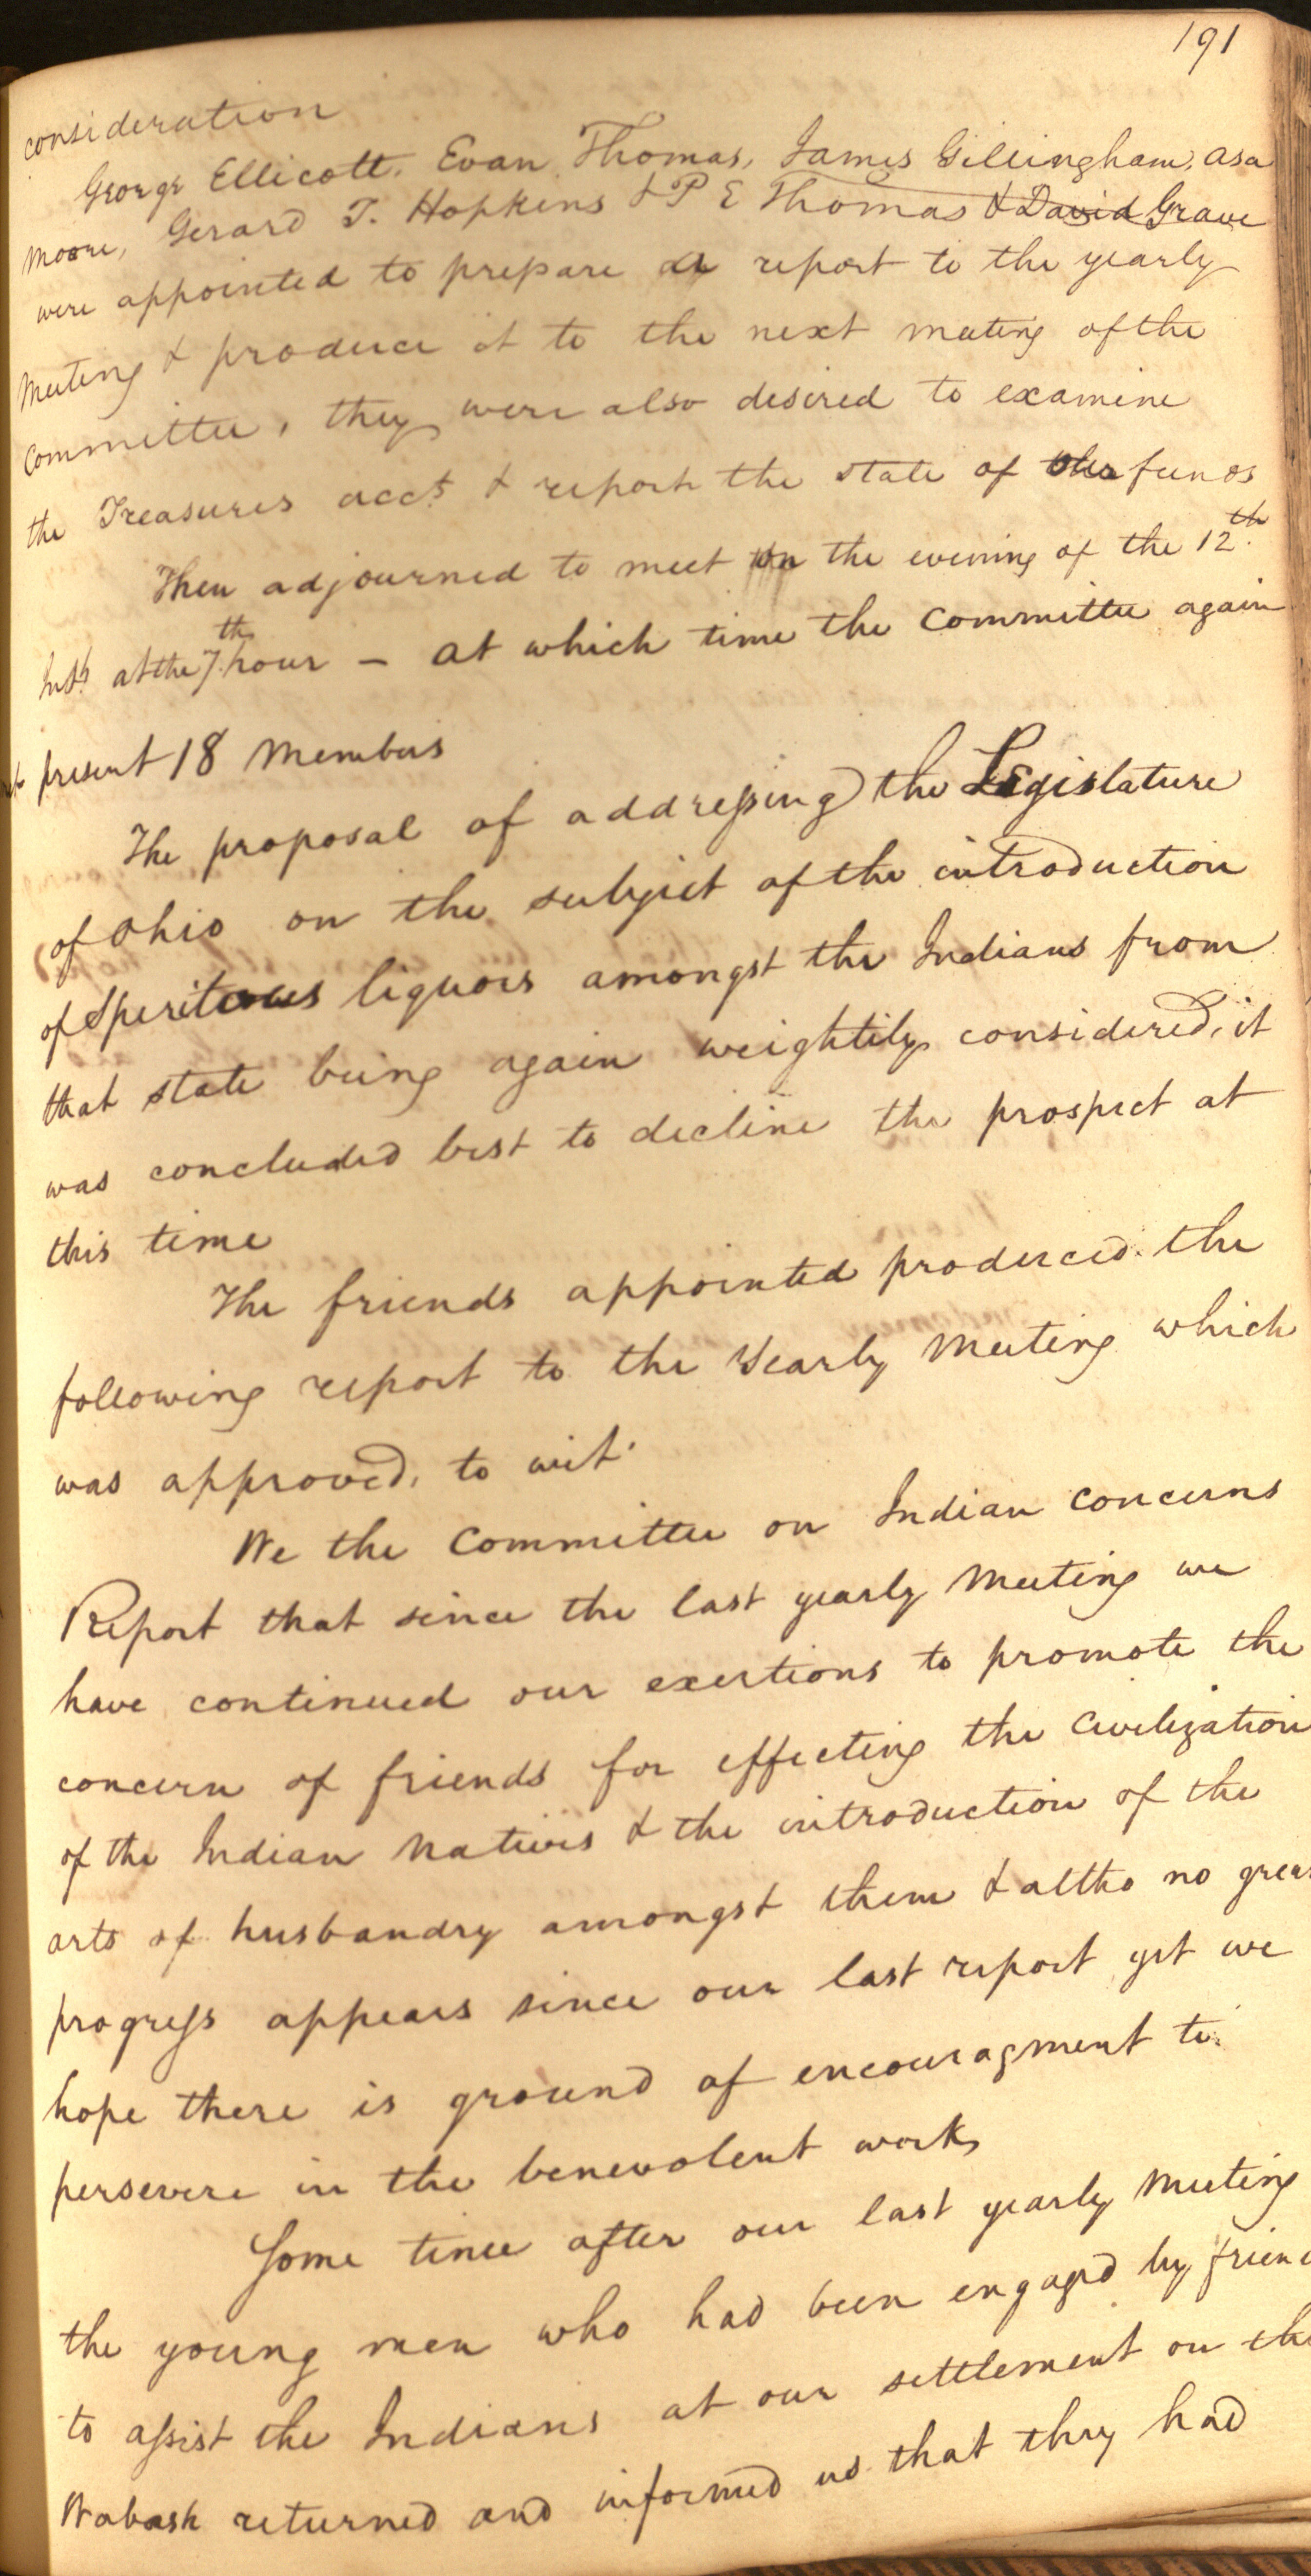 191
consideration
George Ellicott, Evan Thomas, James Gillingham, Asa
Moore, Gerard T. Hopkins & P E Thomas & David Grave
were appointed to prepare a report to the yearly
Meeting & produce it to the next meeting of the
Committee, they were also desired to examine
the Treasurers acct. & report the state of the funds
Then adjourned to meet on the evening of the 12th.
Inst. at the 7th hour – at which time the Committee again
met present 18 Members
The proposal of addressing the Legislature
of Ohio on the subject of the introduction
of Speritous liquors amongst the Indians from
that state being again weightily considered, it
was concluded best to decline the prospect at
this time
The friends appointed produced the
following report to the Yearly Meeting which
was approved, to wit.
We the Committee on Indian Concerns
Report that since the last yearly Meeting we
have continued our exertions to promote the
concern of friends for effecting the Civilization
of the Indian Natives & the introduction of the
arts of husbandry amongst them & altho no great
progress appears since our last report yet we
hope there is ground of encouragment to
persevere in the benevolent work
Some time after our last yearly Meeting
the young men who had been engaged by friend
to assist the Indians at our settlement on the
Wabash returned and informed us that they had